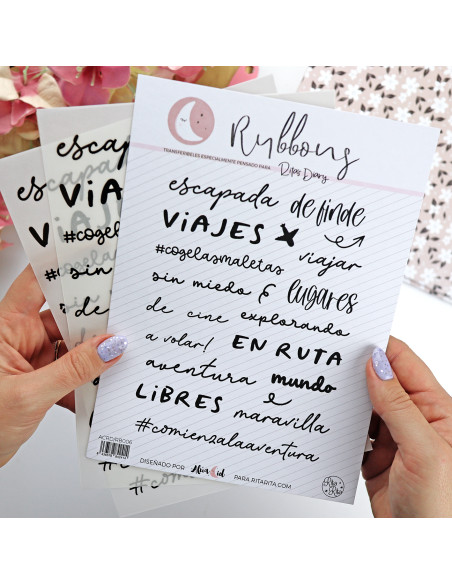 Rubbons
TRANSFERIBLES ESPECIALMENTE PENSADO PARA Ritas Diary
escapada de finde
VIAJES
viajar
#cogelasmaletas
sin miedo & lugares
de cine explorando
a volar! EN RUTA
aventura mundo
LIBRES maravilla
#comienzalaaventura
DISEÑADO POR
PARA RITARITA.COM
escapa
VIAJ
#cogel
sin
de
#comie